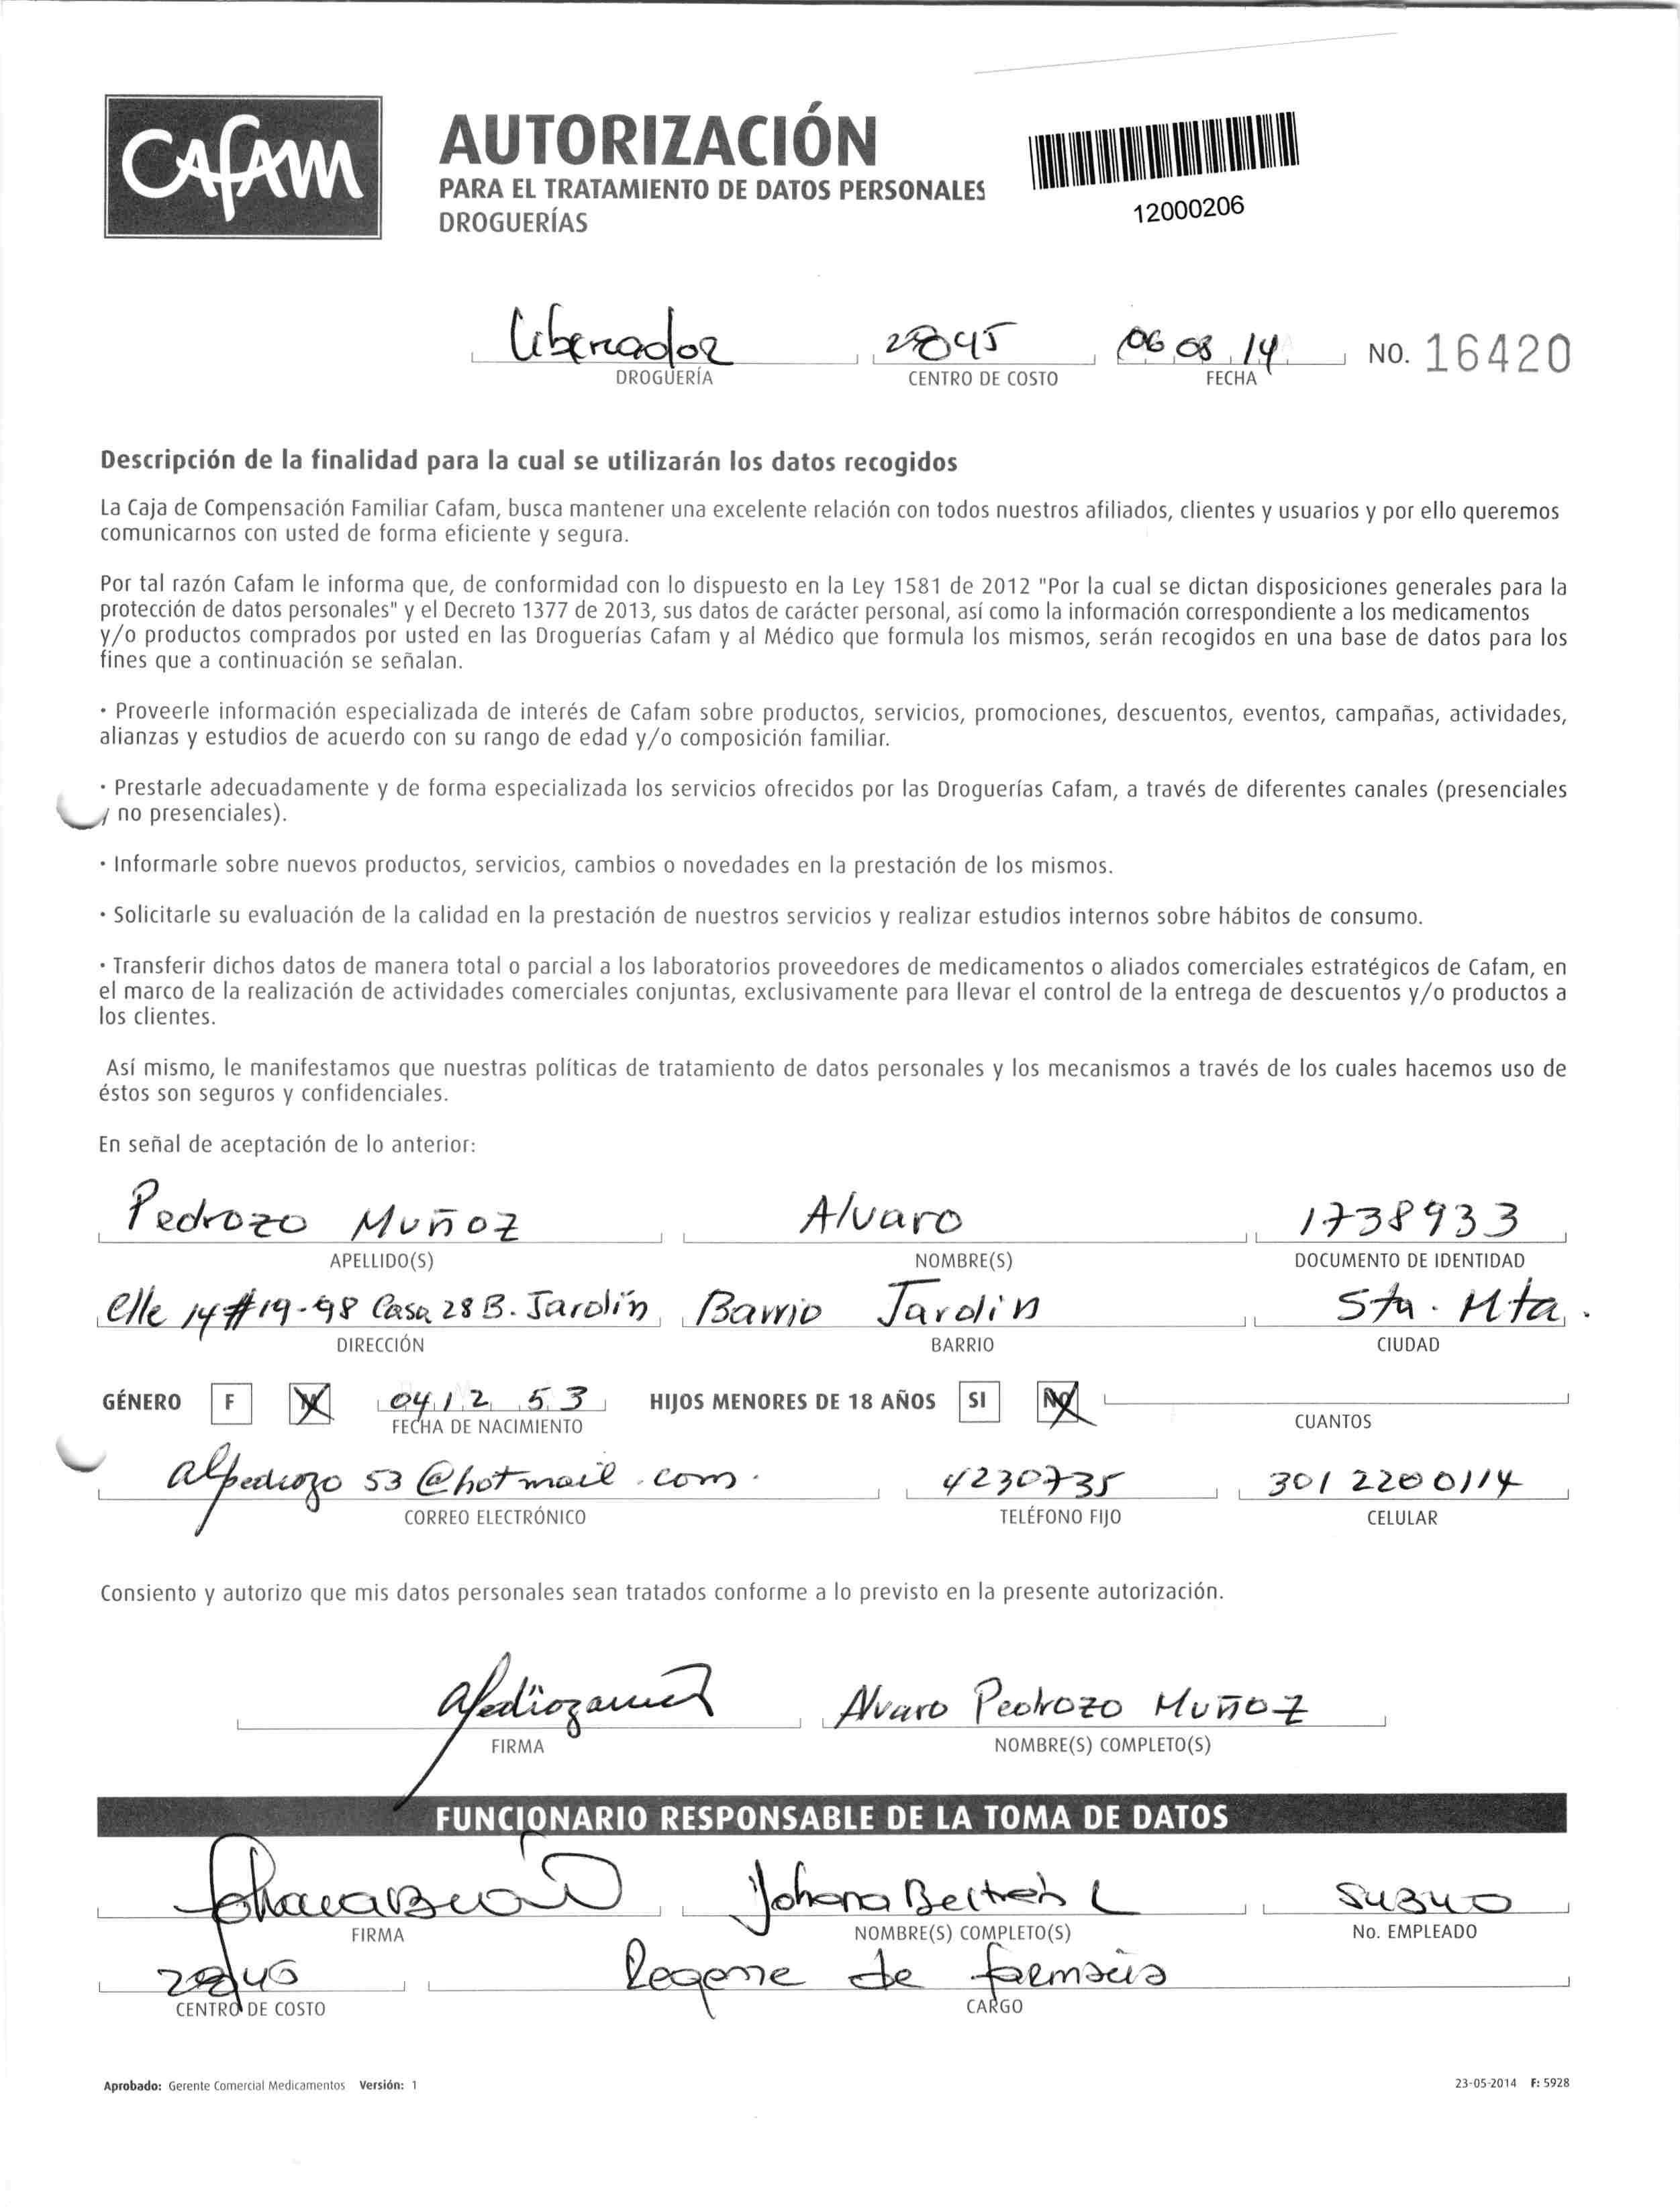 CAFAM
AUTORIZACIÓN
PARA EL TRATAMIENTO DE DATOS PERSONALES
DROGUERÍAS
12000206
Libertador 06 08 14 NO. 16420
DROGUERÍA CENTRO DE COSTO FECHA
Descripción de la finalidad para la cual se utilizarán los datos recogidos
La Caja de Compensación Familiar Cafam, busca mantener una excelente relación con todos nuestros afiliados, clientes y usuarios y por ello queremos
comunicarnos con usted de forma eficiente y segura.
Por tal razón Cafam le informa que, de conformidad con lo dispuesto en la Ley 1581 de 2012 "Por la cual se dictan disposiciones generales para la
protección de datos personales" y el Decreto 1377 de 2013, sus datos de carácter personal, así como la información correspondiente a los medicamentos
y/o productos comprados por usted en las Droguerías Cafam y al Médico que formula los mismos, serán recogidos en una base de datos para los
fines que a continuación se señalan.
· Proveerle información especializada de interés de Cafam sobre productos, servicios, promociones, descuentos, eventos, campañas, actividades,
alianzas y estudios de acuerdo con su rango de edad y/o composición familiar.
· Prestarle adecuadamente y de forma especializada los servicios ofrecidos por las Droguerías Cafam, a través de diferentes canales (presenciales
y no presenciales).
· Informarle sobre nuevos productos, servicios, cambios o novedades en la prestación de los mismos.
· Solicitarle su evaluación de la calidad en la prestación de nuestros servicios y realizar estudios internos sobre hábitos de consumo.
· Transferir dichos datos de manera total o parcial a los laboratorios proveedores de medicamentos o aliados comerciales estratégicos de Cafam, en
el marco de la realización de actividades comerciales conjuntas, exclusivamente para llevar el control de la entrega de descuentos y/o productos a
los clientes.
Así mismo, le manifestamos que nuestras políticas de tratamiento de datos personales y los mecanismos a través de los cuales hacemos uso de
éstos son seguros y confidenciales.
En señal de aceptación de lo anterior:
Pedrozo Muñoz Alvaro 1738933
APELLIDO(S) NOMBRE(S) DOCUMENTO DE IDENTIDAD
Clle 14 #19-98 Casa 28 B. Jardín Barrio Jardin Sta. Mta.
DIRECCIÓN BARRIO CIUDAD
GÉNERO F M 04 12 53 HIJOS MENORES DE 18 AÑOS SI NO
FECHA DE NACIMIENTO CUANTOS
alpedrozo 53 @hotmail.com. 4230735 301 2200114
CORREO ELECTRÓNICO TELÉFONO FIJO CELULAR
Consiento y autorizo que mis datos personales sean tratados conforme a lo previsto en la presente autorización.
Alvaro Pedrozo Muñoz
FIRMA NOMBRE(S) COMPLETO(S)
FUNCIONARIO RESPONSABLE DE LA TOMA DE DATOS
Johana Beltrán L
FIRMA NOMBRE(S) COMPLETO(S) No. EMPLEADO
Regente de farmacia
CENTRO DE COSTO CARGO
Aprobado: Gerente Comercial Medicamentos Versión: 1 23-05-2014 F: 5928